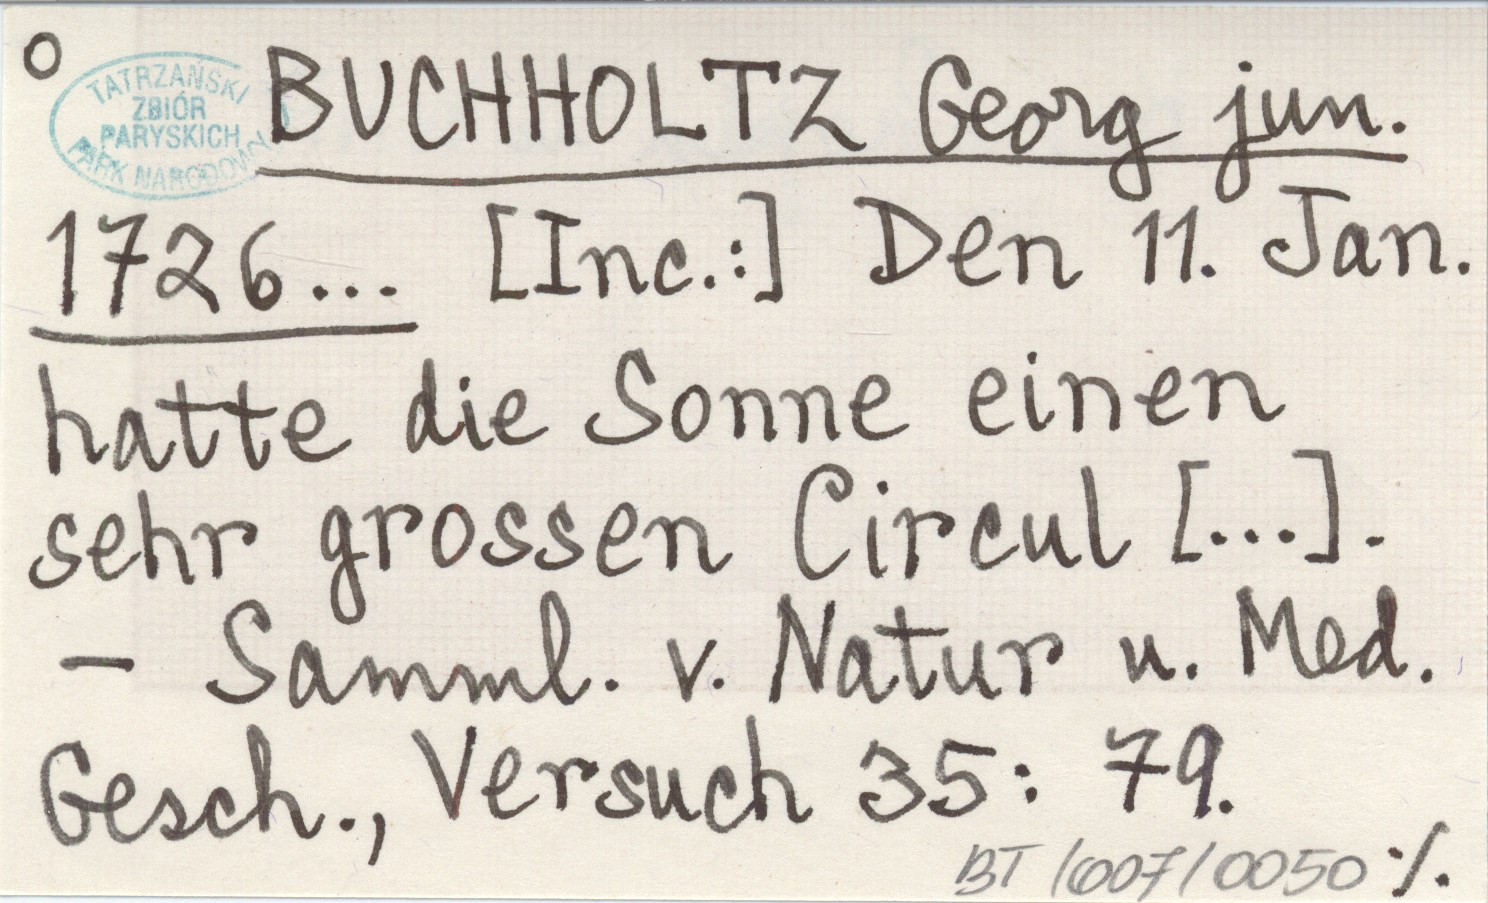 O
TATRZAŃSKI
ZBIÓR
PARYSKICH
PARK NARODOWY
BUCHHOLTZ Georg jun.
1726... [Inc.:] Den 11. Jan.
hatte die Sonne einen
sehr grossen Circul [...].
– Samml. v. Natur u. Med.
Gesch., Versuch 35: 79.
BT /607/0050 ·/.